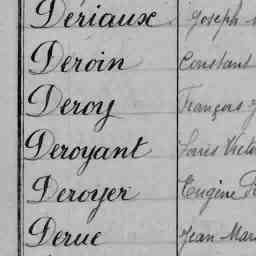 Dériaux Joseph
Deroin Constant
Deroy François
Deroyant Louis
Deroyer Eugène
Derue Jean